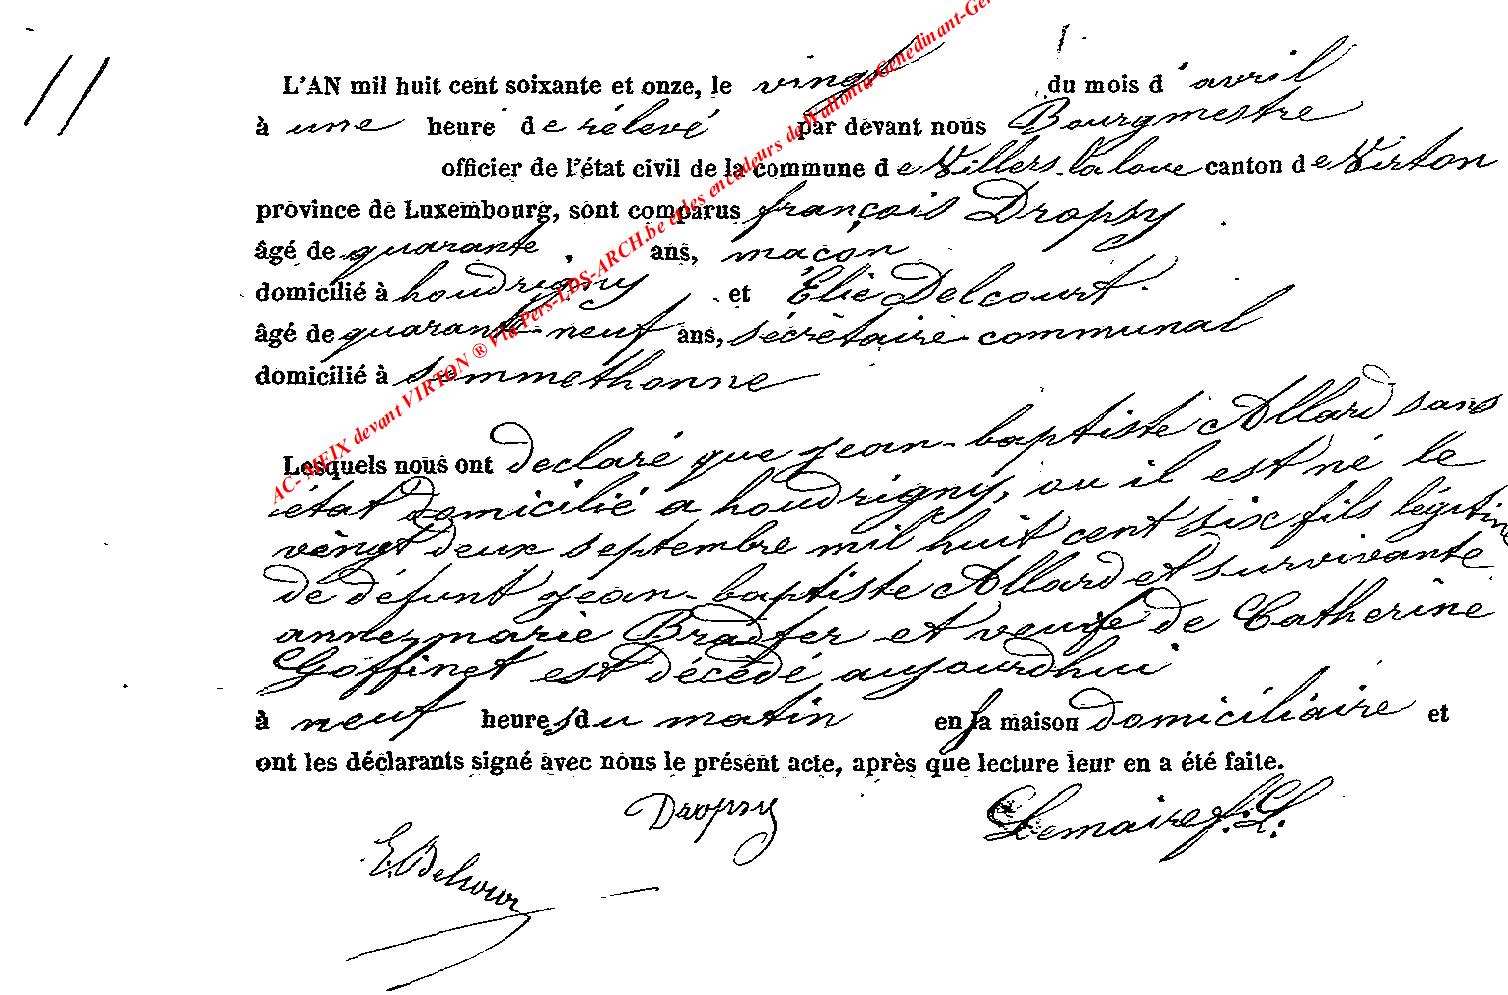 11
L'AN mil huit cent soixante et onze, le vingt du mois d'avril
à une heure de rélevé par devant nous Bourgmestre
officier de l'état civil de la commune de Villers-la loue canton de Virton
province de Luxembourg, sont comparus françois Dropsy
âgé de quarante ans, maçon
domicilié à houdrigny et Élie Delcourt.
âgé de quarante-neuf ans, sécrètaire communal
domicilié à Sommethonne
Lesquels nous ont declaré que jean-baptiste Allard sans
état domicilié a houdrigny, ou il est né le
vingt deux septembre mil huit cent six fils légitime
de défunt jean-baptiste Allard et survivante
anne-marie Bradfer et veuf de Catherine
Goffinet est décédé aujourdhui
à neuf heures du matin en sa maison domiciliaire et
ont les déclarants signé avec nous le présent acte, après que lecture leur en a été faite.
Dropsy Lemaire f.L:
E. Delcour
AC- MEIX devant VIRTON ® Via Pers-LDS-ARCH.be et les encodeurs de Wallonia-Genedinant-Ge